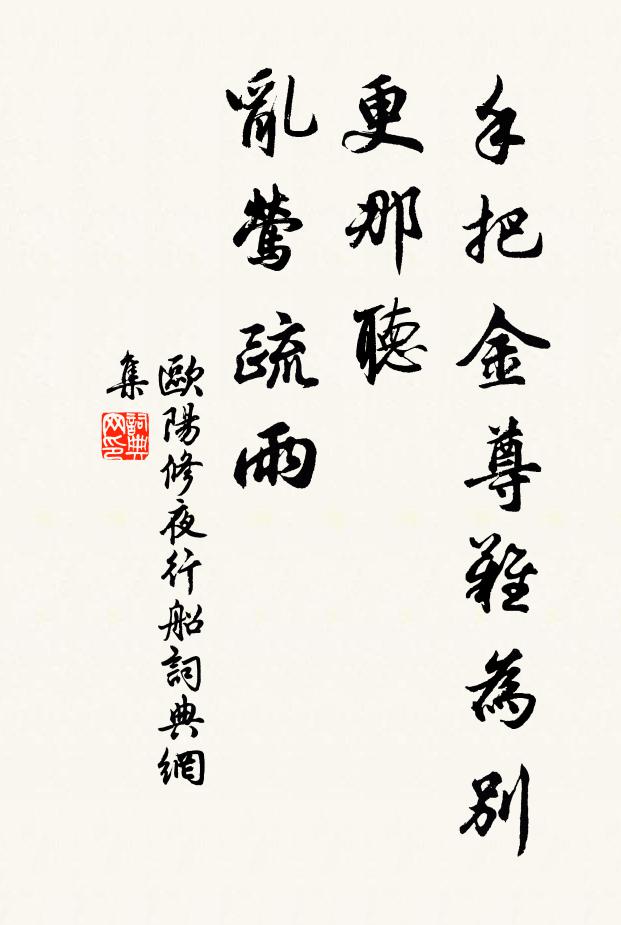 手把金尊難為別
更那聽
亂鶯疏雨
歐陽修夜行船詞典網
集
詞典
网印